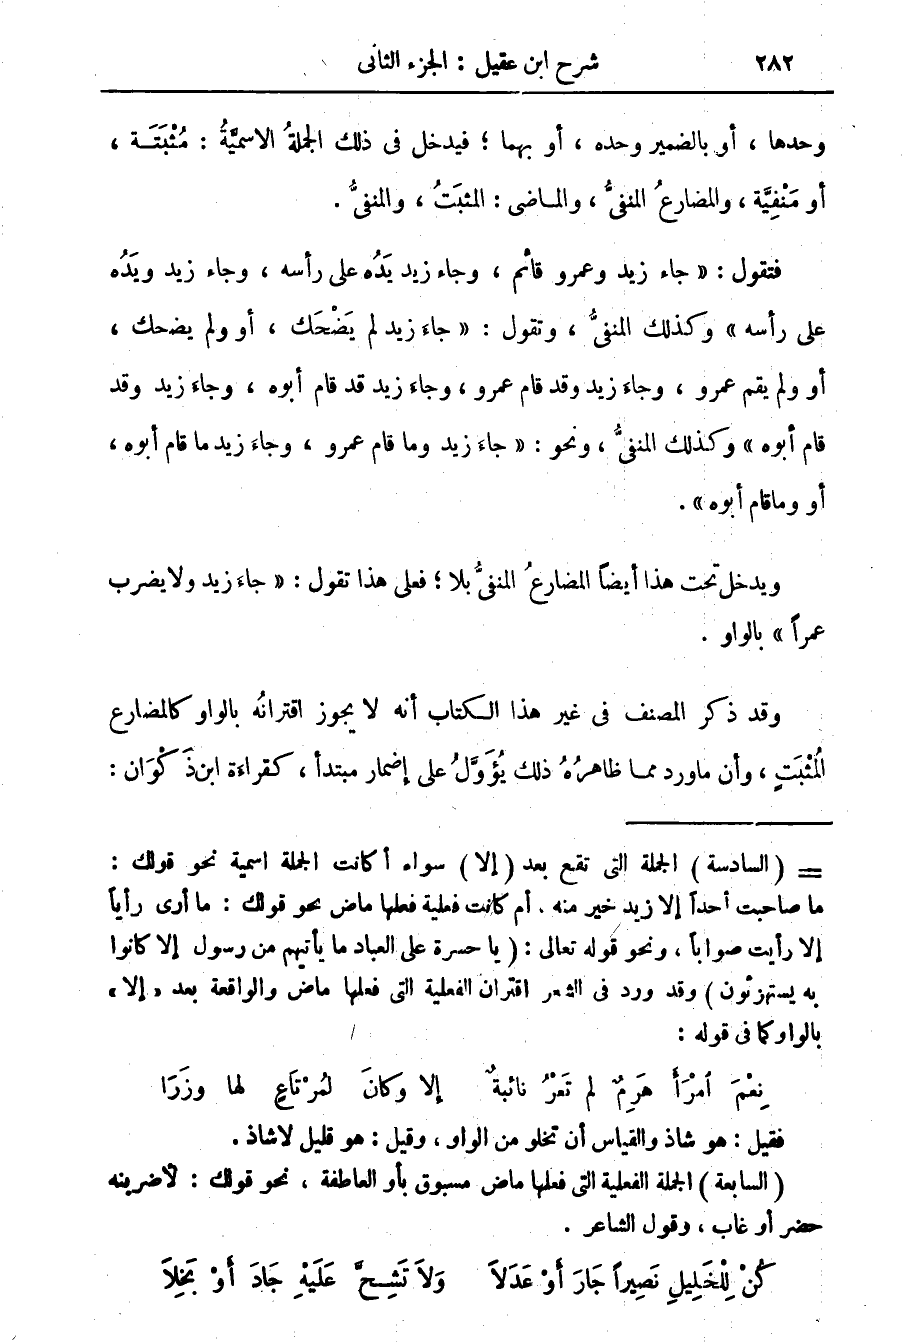 ٢٨٢ شرح ابن عقيل : الجزء الثانى
وحدها ، أو بالضمير وحده ، أو بهما ؛ فيدخل فى ذلك الجملةُ الاسميَّةُ : مُثْبَتَـة ،
أو مَنْفِيَّة ، والمضارعُ المنفىُّ ، والمـاضى : المثبَتُ ، والمنفىُّ .
فتقول : « جاء زيد وعمرو قائم ، وجاء زيد يَدُه على رأسه ، وجاء زيد ويَدُه
على رأسه » وكذلك المنفىُّ ، وتقول : « جاءَ زيد لم يَضْحَك ، أو ولم يضحك ،
أو ولم يقم عمرو ، وجاءَ زيد وقد قام عمرو ، وجاءَ زيد قد قام أبوه ، وجاءَ زيد وقد
قام أبوه » وكذلك المنفىُّ ، ونحو : « جاءَ زيد وما قام عمرو ، وجاءَ زيد ما قام أبوه ،
أو وماقام أبوه » .
ويدخل تحت هذا أيضاً المضارعُ المنفىُّ بلا ؛ فعلى هذا تقول : « جاءَ زيد ولا يضرب
عمراً » بالواو .
وقد ذكر المصنف فى غير هذا الـكتاب أنه لا يجوز اقترانُه بالواو كالمضارع
المُثْبَتِ ، وأن ماورد ممـا ظاهرُهُ ذلك يُؤَوَّلُ على إضمار مبتدأ ، كقراءة ابن ذَكْوَان :
= ( السادسة ) الجملة التى تقع بعد ( إلا ) سواء أكانت الجملة اسمية نحو قولك :
ما صاحبت أحداً إلا زيد خير منه . أم كانت فعلية فعلها ماض نحو قولك : ما أرى رأياً
إلا رأيت صواباً ، ونحو قوله تعالى : ( يا حسرة على العباد ما يأتيهم من رسول إلا كانوا
به يستهزئون ) وقد ورد فى الشعر اقتران الفعلية التى فعلها ماض والواقعة بعد « إلا »
بالواو كما فى قوله :
نِعْمَ امْرَأً هَرِمٌ لم تَعْرُ نائبةٌ إلا وكانَ لمُرْتَاعٍ لها وزَرَا
فقيل : هو شاذ والقياس أن تخلو من الواو ، وقيل : هو قليل لاشاذ .
( السابعة ) الجملة الفعلية التى فعلها ماض مسبوق بأو العاطفة ، نحو قولك : لأضربنه
حضر أو غاب ، وقول الشاعر .
كُنْ لِلْخَلِيلِ نَصِيراً جَارَ أَوْ عَدَلاَ وَلاَ تَشِـحَّ عَلَيْهِ جَادَ أَوْ بَخِلاَ